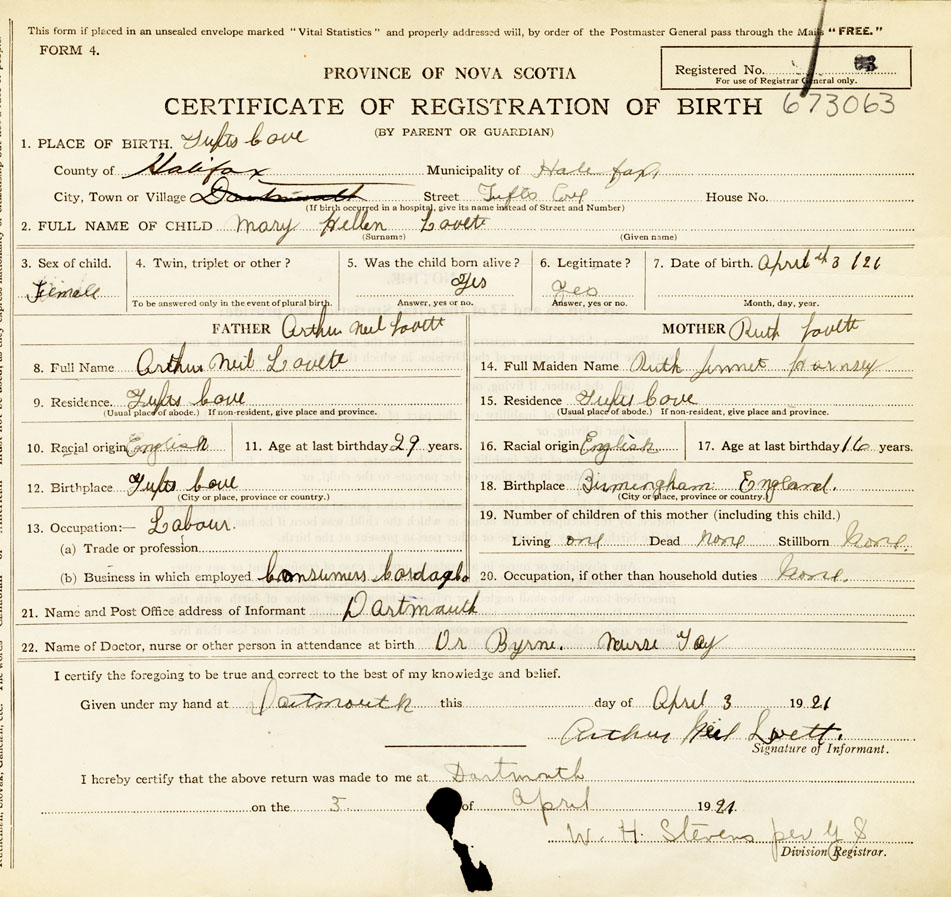 This form if placed in an unsealed envelope marked "Vital Statistics" and properly addressed will, by order of the Postmaster General pass through the Mails "FREE."
FORM 4.
Registered No.
For use of Registrar General only.
PROVINCE OF NOVA SCOTIA
CERTIFICATE OF REGISTRATION OF BIRTH 673063
(BY PARENT OR GUARDIAN)
1. PLACE OF BIRTH. Tufts Cove
County of Halifax Municipality of Halefax
City, Town or Village Dartmouth Street Tufts Cove House No.
(If birth occurred in a hospital, give its name instead of Street and Number)
2. FULL NAME OF CHILD Mary Hellen Lovett
(Surname) (Given name)
3. Sex of child. 4. Twin, triplet or other? 5. Was the child born alive? 6. Legitimate? 7. Date of birth. April th 3 /21
Female Yes Yes
To be answered only in the event of plural birth. Answer, yes or no. Answer, yes or no. Month, day, year.
FATHER Arthur Neil Lovett MOTHER Ruth Lovett
8. Full Name Arthur Neil Lovett 14. Full Maiden Name Ruth
9. Residence. Tufts Cove 15. Residence Tufts Cove
(Usual place of abode.) If non-resident, give place and province. (Usual place of abode.) If non-resident, give place and province.
10. Racial origin English 11. Age at last birthday 29 years. 16. Racial origin English 17. Age at last birthday 16 years.
12. Birthplace Tufts Cove 18. Birthplace Birmingham England.
(City or place, province or country.) (City or place, province or country.)
13. Occupation:— Labour. 19. Number of children of this mother (including this child.)
(a) Trade or profession Living one Dead None Stillborn None.
(b) Business in which employed Consumers Cordage Co 20. Occupation, if other than household duties None.
21. Name and Post Office address of Informant Dartmouth
22. Name of Doctor, nurse or other person in attendance at birth Dr Byrne. Nurse
I certify the foregoing to be true and correct to the best of my knowledge and belief.
Given under my hand at Dartmouth this day of April 3 1921
Arthur Neil Lovett.
Signature of Informant.
I hereby certify that the above return was made to me at Dartmouth
on the 5 of April 1921
W. H. Stevens per
Division Registrar.